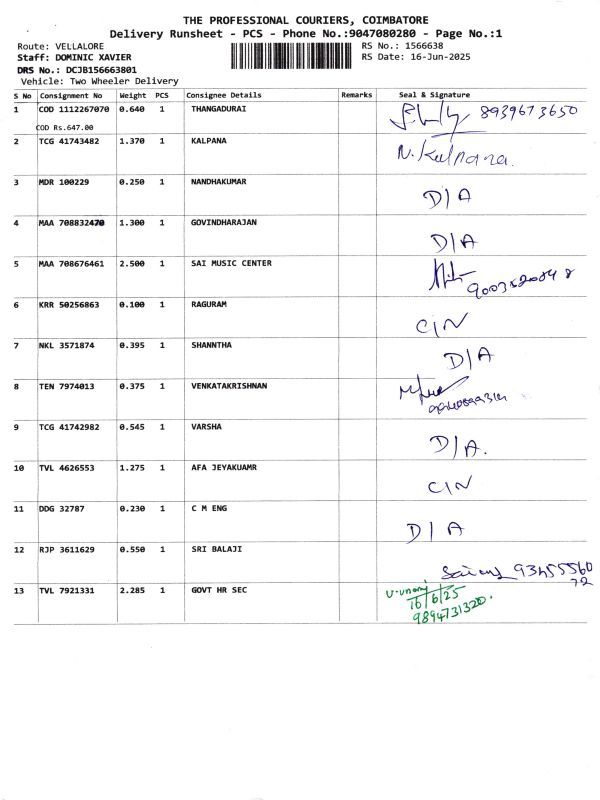 THE PROFESSIONAL COURIERS, COIMBATORE
Delivery Runsheet - PCS - Phone No.:9047080280 - Page No.:1
Route: VELLALORE RS No.: 1566638
Staff: DOMINIC XAVIER RS Date: 16-Jun-2025
DRS No.: DCJB156663801
Vehicle: Two Wheeler Delivery
S No Consignment No Weight PCS Consignee Details Remarks Seal & Signature
1 COD 1112267070 0.640 1 THANGADURAI 8939673650
COD Rs.647.00
2 TCG 41743482 1.370 1 KALPANA N. Kalpana.
3 MDR 100229 0.250 1 NANDHAKUMAR D/A
4 MAA 708832470 1.300 1 GOVINDHARAJAN D/A
5 MAA 708676461 2.500 1 SAI MUSIC CENTER
6 KRR 50256863 0.100 1 RAGURAM C/N
7 NKL 3571874 0.395 1 SHANNTHA D/A
8 TEN 7974013 0.375 1 VENKATAKRISHNAN
9 TCG 41742982 0.545 1 VARSHA D/A.
10 TVL 4626553 1.275 1 AFA JEYAKUAMR C/N
11 DDG 32787 0.230 1 C M ENG D/A
12 RJP 3611629 0.550 1 SRI BALAJI 93455560
72
13 TVL 7921331 2.285 1 GOVT HR SEC
16/6/25
9894731320.